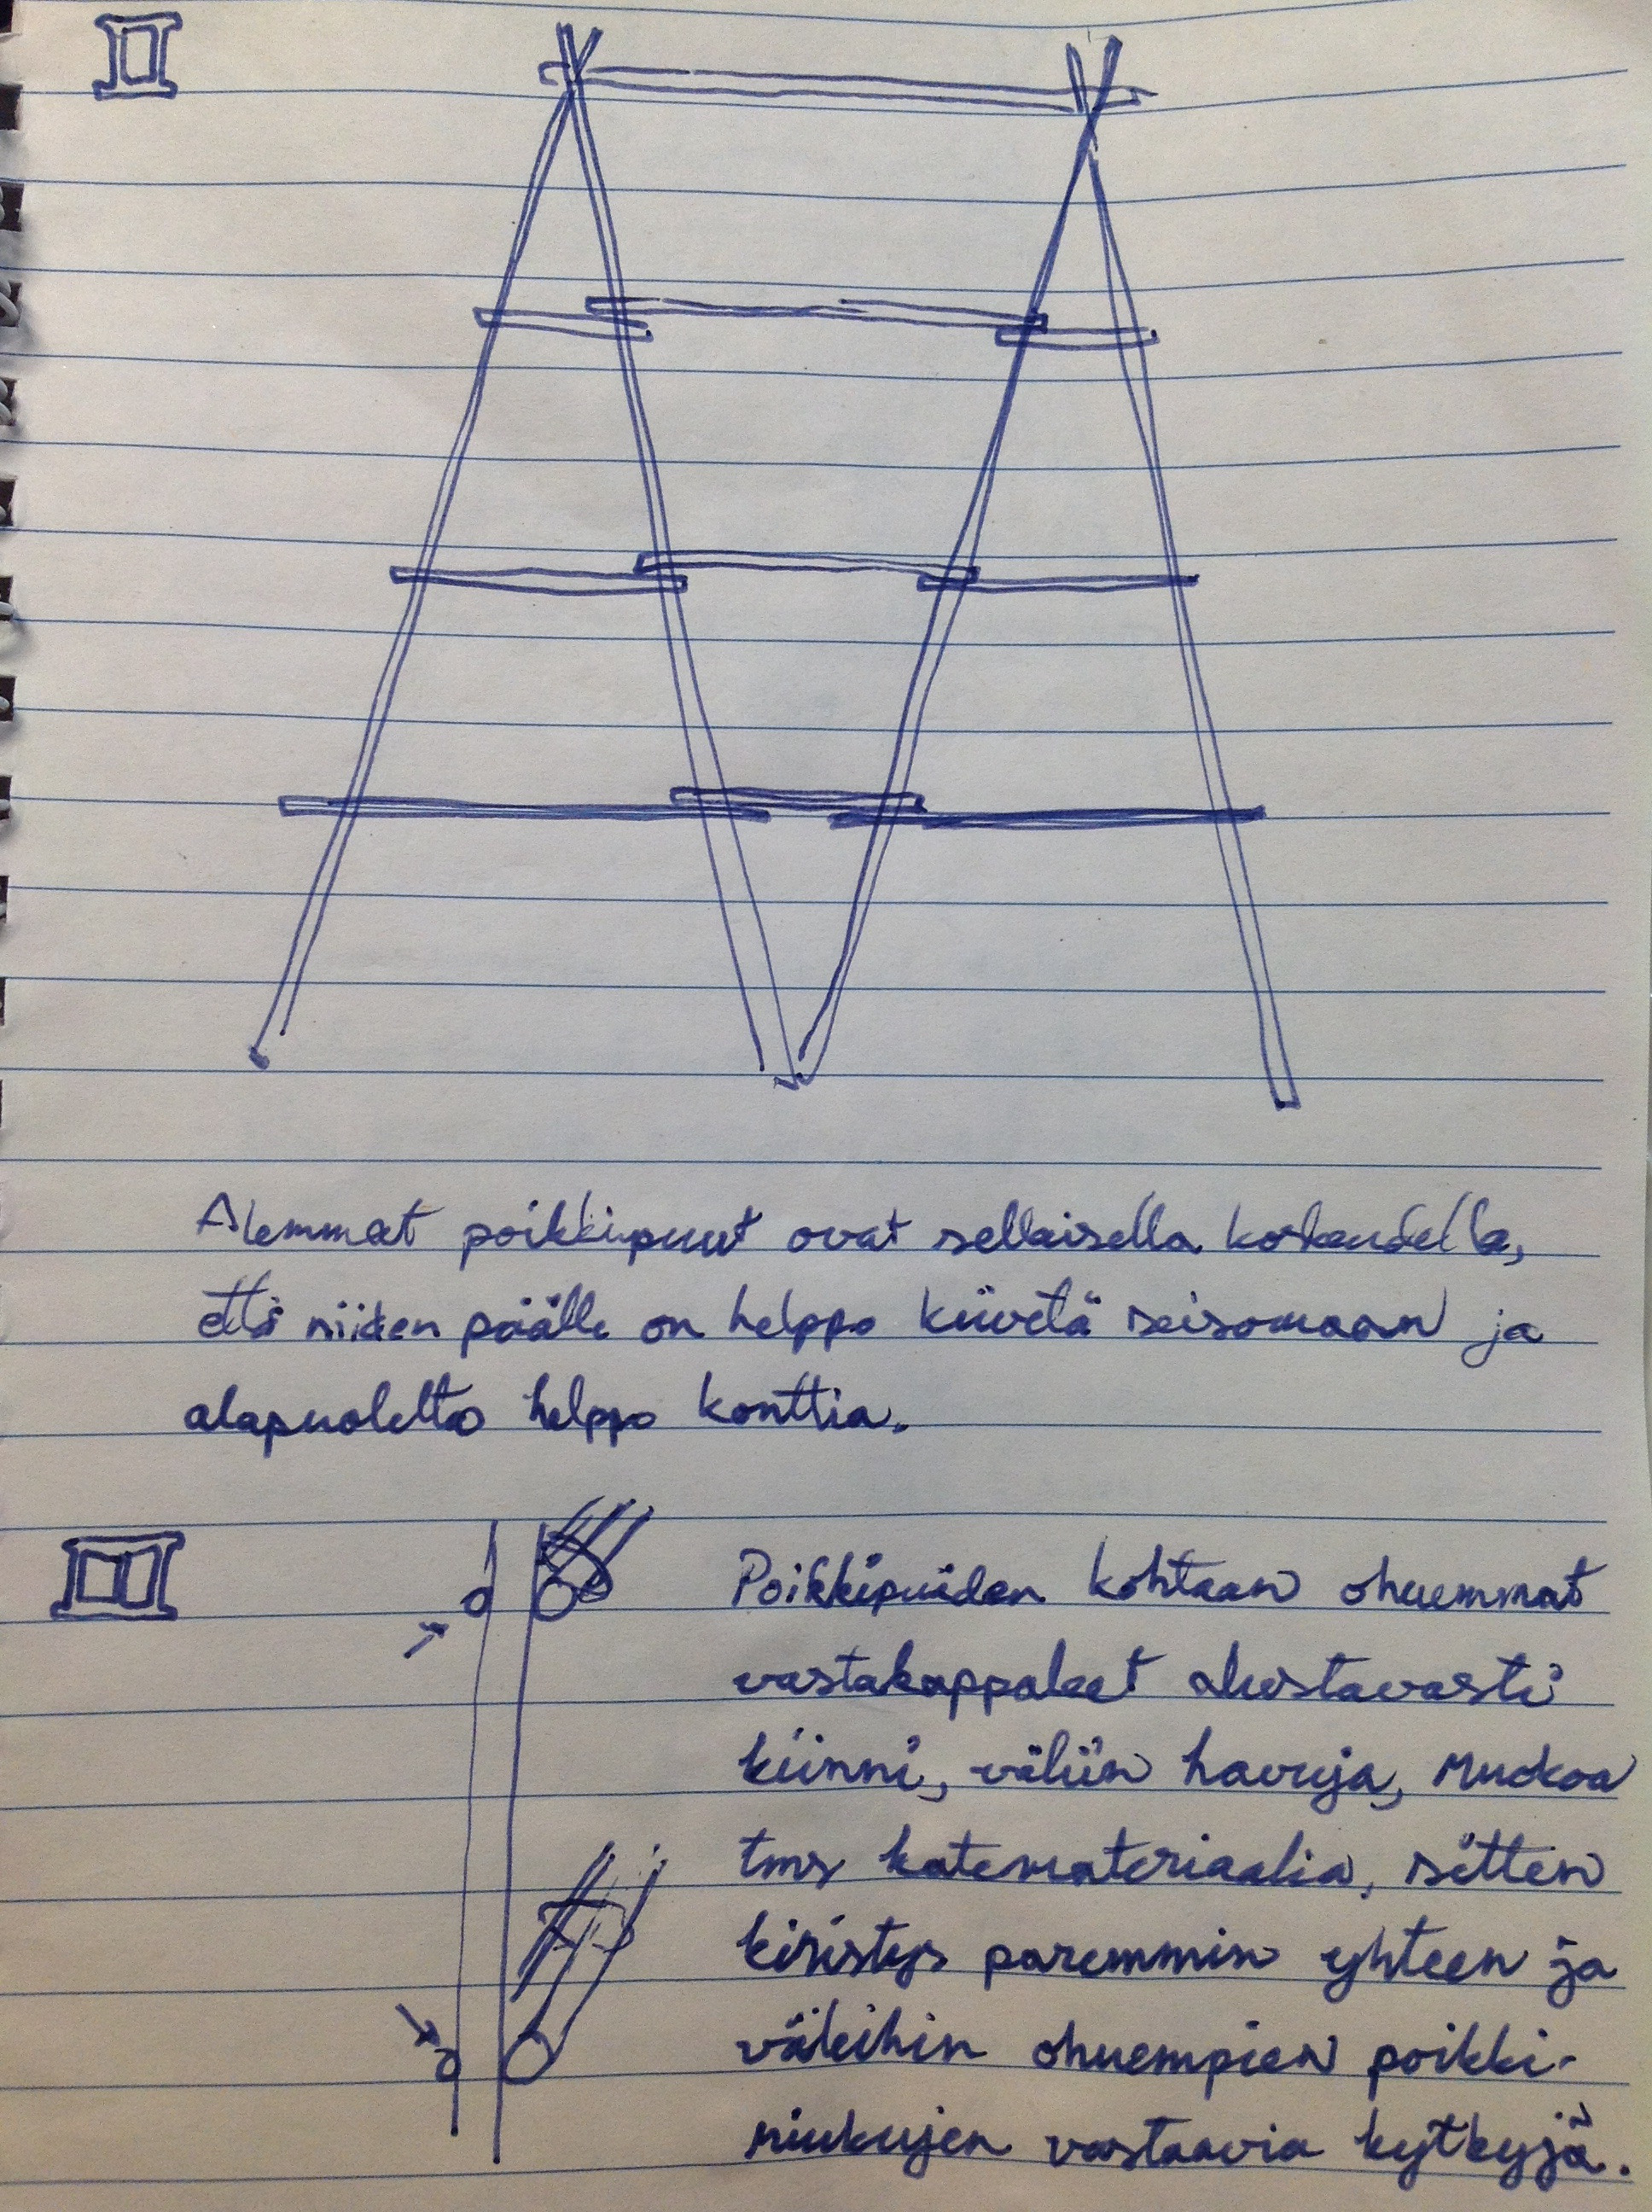 II
Alemmat poikkipuut ovat sellaisella korkeudella,
että niiden päälle on helppo kiivetä seisomaan ja
alapuolelta helppo konttia.
III
Poikkipuiden kohtaan ohuemmat
vastakappaleet alustavasti
kiinni, väliin havuja, ruokoa
tms katemateriaalia, sitten
kiristys paremmin yhteen ja
väleihin ohuempien poikki-
riukujen vastaavia kytkyjä.